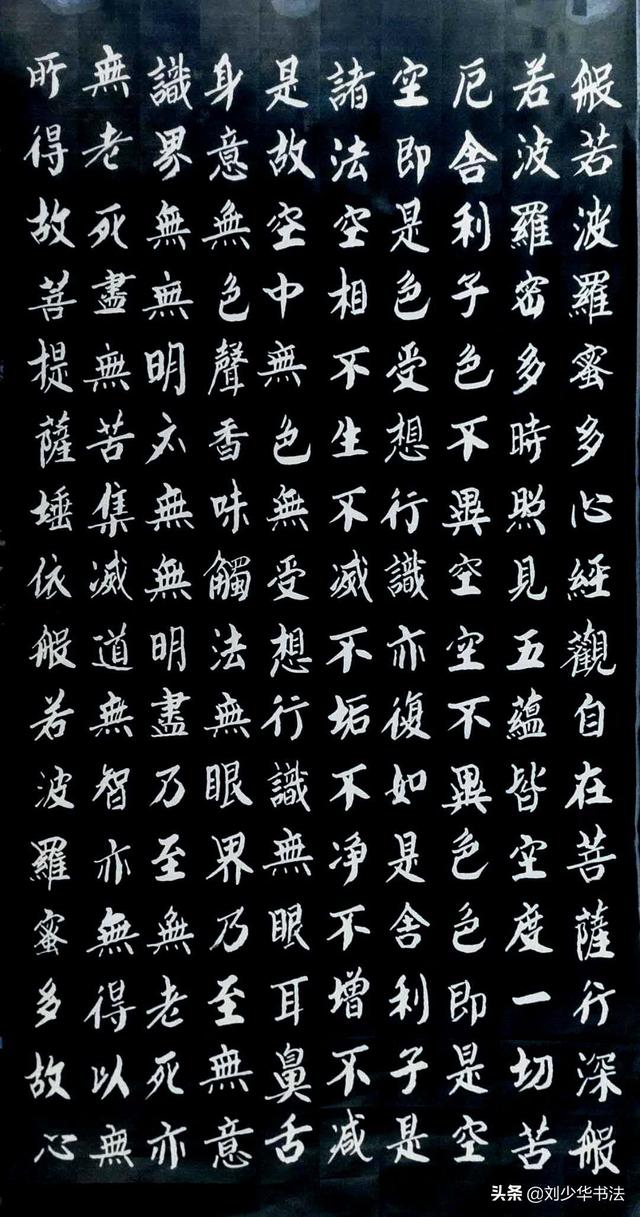 般若波羅蜜多心經觀自在菩薩行深般
若波羅密多時照見五蘊皆空度一切苦
厄舍利子色不異空空不異色色即是空
空即是色受想行識亦復如是舍利子是
諸法空相不生不滅不垢不净不增不减
是故空中無色無受想行識無眼耳鼻舌
身意無色聲香味觸法無眼界乃至無意
識界無無明亦無無明盡乃至無老死亦
無老死盡無苦集滅道無智亦無得以無
所得故菩提薩埵依般若波羅蜜多故心
头条 @刘少华书法